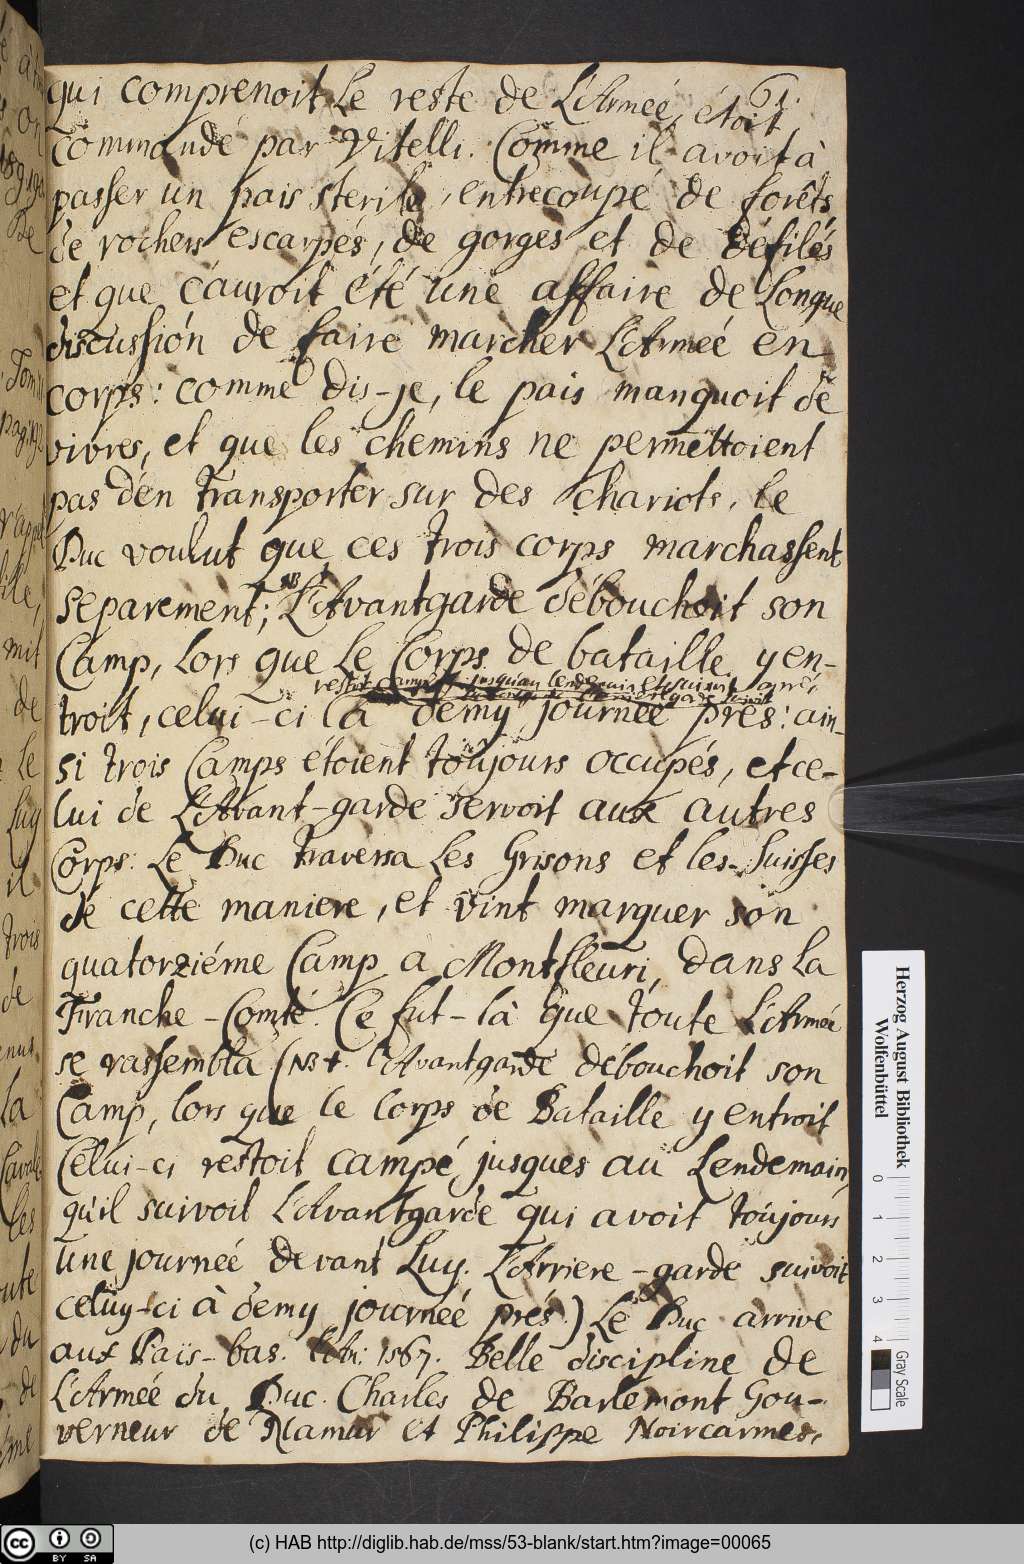 61.
qui comprenoit le reste de l'Armeé, étoit
commandé par Vitelli. Comme il avoit à
passer un païs sterile, entrecoupé de forêts
de rochers escarpés, de gorges et de défilés
et que c'auroit été une affaire de longue
discussion de faire marcher l'Armeé en
corps: comme dis-je, le païs manquoit de
vivres, et que les chemins ne permettoient
pas d'en transporter sur des chariots, le
Duc voulut que ces trois corps marchassent
separement; NB L'Avantgarde débouchoit son
Camp, lors que le Corps de bataille y en-
restoit campé jusqu'au lendemain et suivoit
troit, celui-ci la demy journeé prés: ain-
si trois Camps étoient toûjours occupés, et ce-
lui de l'Avant-garde servoit aux autres
Corps. Le Duc traversa les Grisons et les Suisses
de cette maniere, et vint marquer son
quatorziéme Camp a Montfleuri, dans la
Franche-Comté. Ce fut-là que toute l'Armeé
se rassembla (NB+. l'Avantgarde débouchoit son
Camp, lors que le Corps de Bataille y entroit
Celui-ci restoit campé jusques au Lendemain,
qu'il suivoit l'Avantgarde qui avoit toûjours
une journeé devant Luy. L'Arriere-garde suivoit
celuy-ci à demy journeé prés.) Le Duc arrive
aux Païs-bas. 1567. Belle discipline de
l'Armeé du Duc. Charles de Barlemont Gou-
verneur de Namur et Philippe Noircarmes,
Herzog August Bibliothek
Wolfenbüttel
0 1 2 3 4
Gray Scale
(c) HAB http://diglib.hab.de/mss/53-blank/start.htm?image=00065
cc BY SA